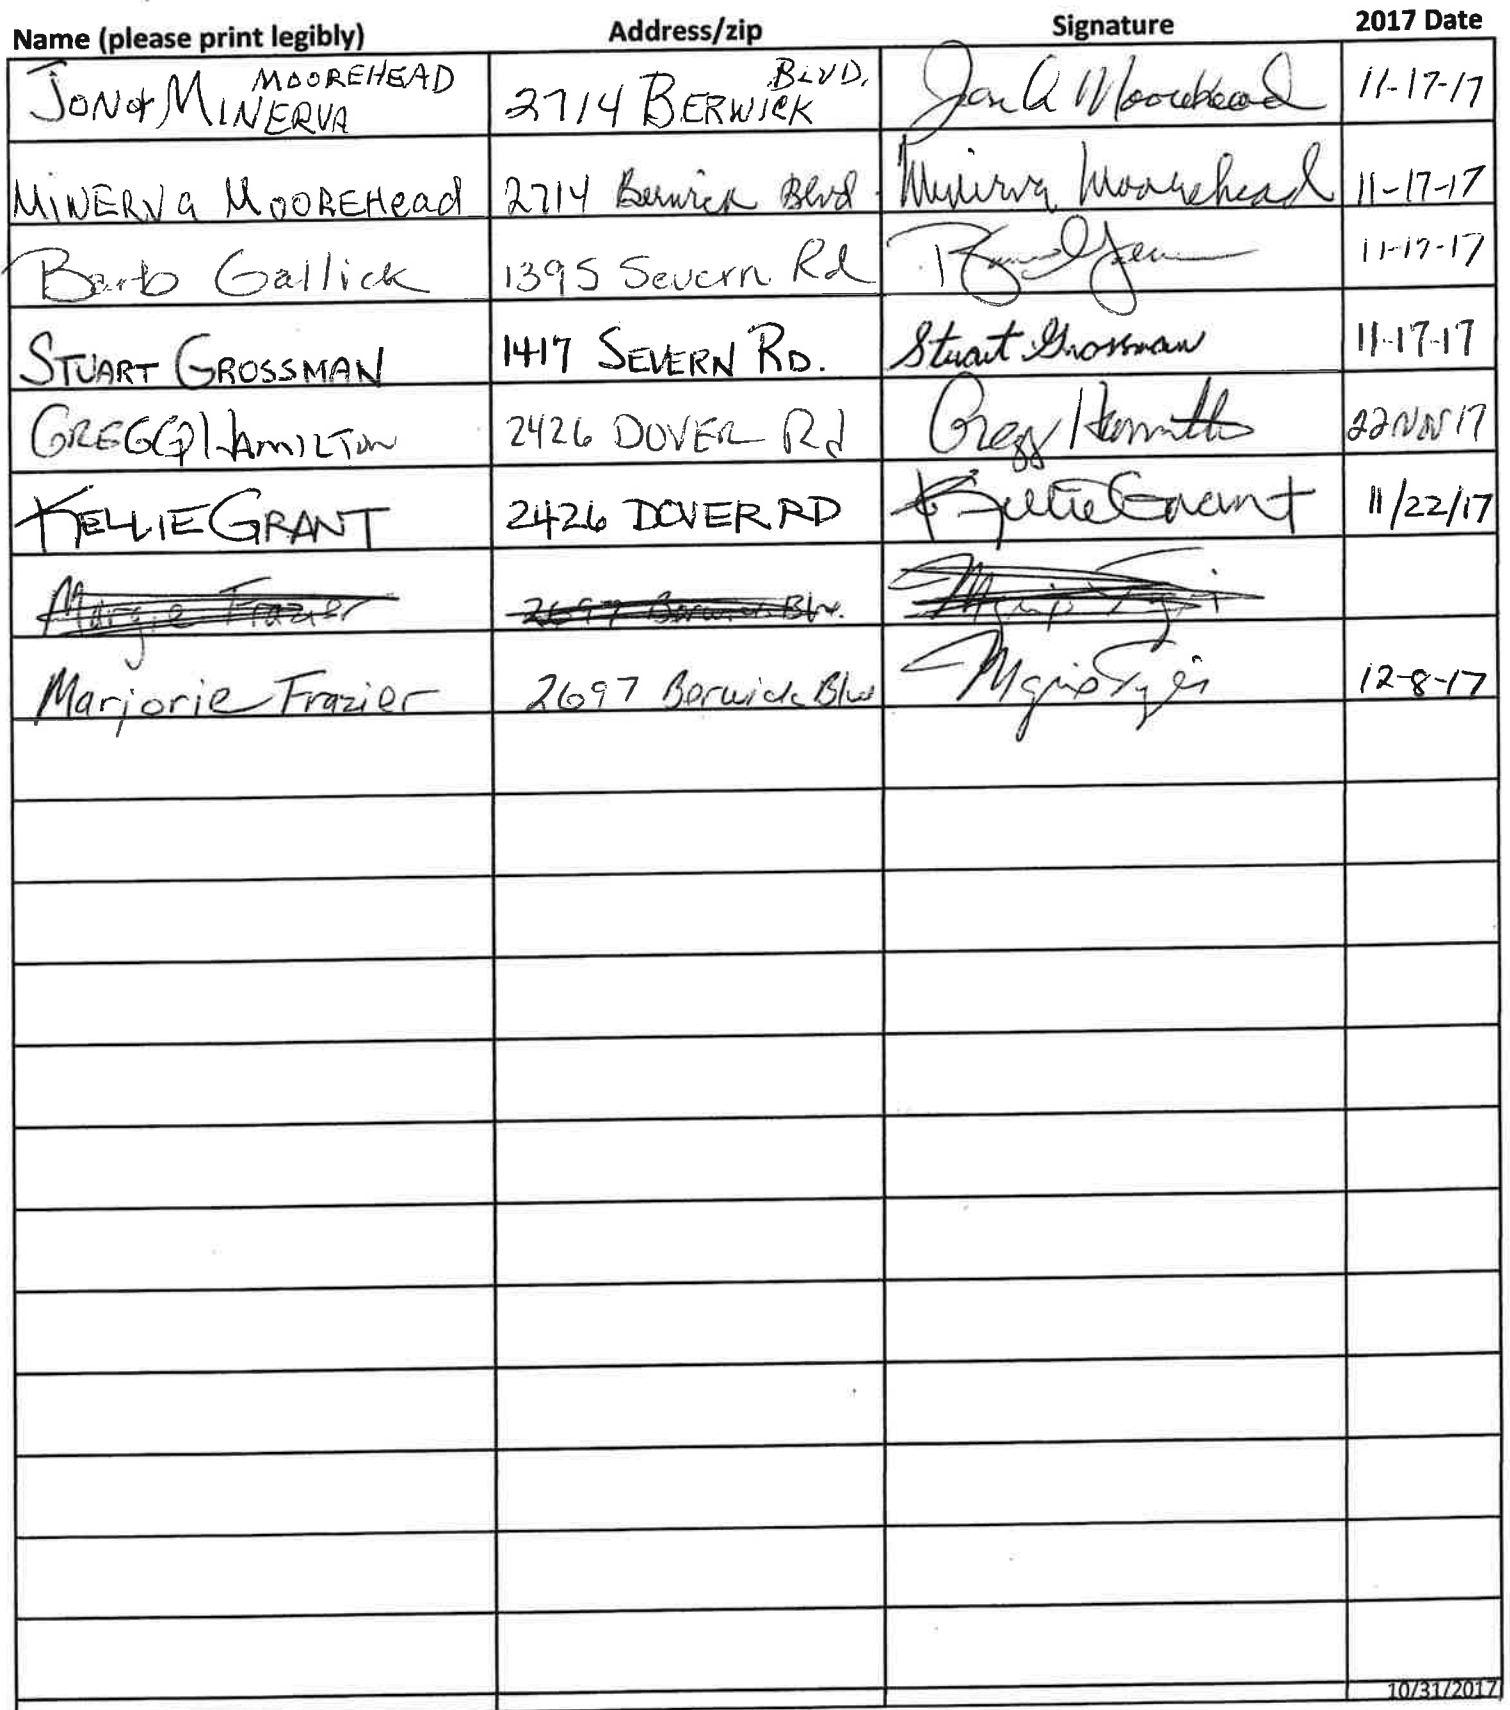 Name (please print legibly) Address/zip Signature 2017 Date
JON & MINERVA MOOREHEAD 2714 BERWICK BLVD. Jon A Moorehead 11-17-17
MINERVA MOOREHead 2714 Berwick Blvd Minerva Moorehead 11-17-17
Barb Gallick 1395 Severn Rd 11-17-17
STUART GROSSMAN 1417 SEVERN RD. Stuart Grossman 11-17-17
GREGG HAMILTON 2426 DOVER Rd Gregg Hamilton 22 NOV 17
KELLIE GRANT 2426 DOVER RD Kellie Grant 11/22/17
Margie Frazier 2697 Berwick Blv.
Marjorie Frazier 2697 Berwick Blvd 12-8-17
10/31/2017